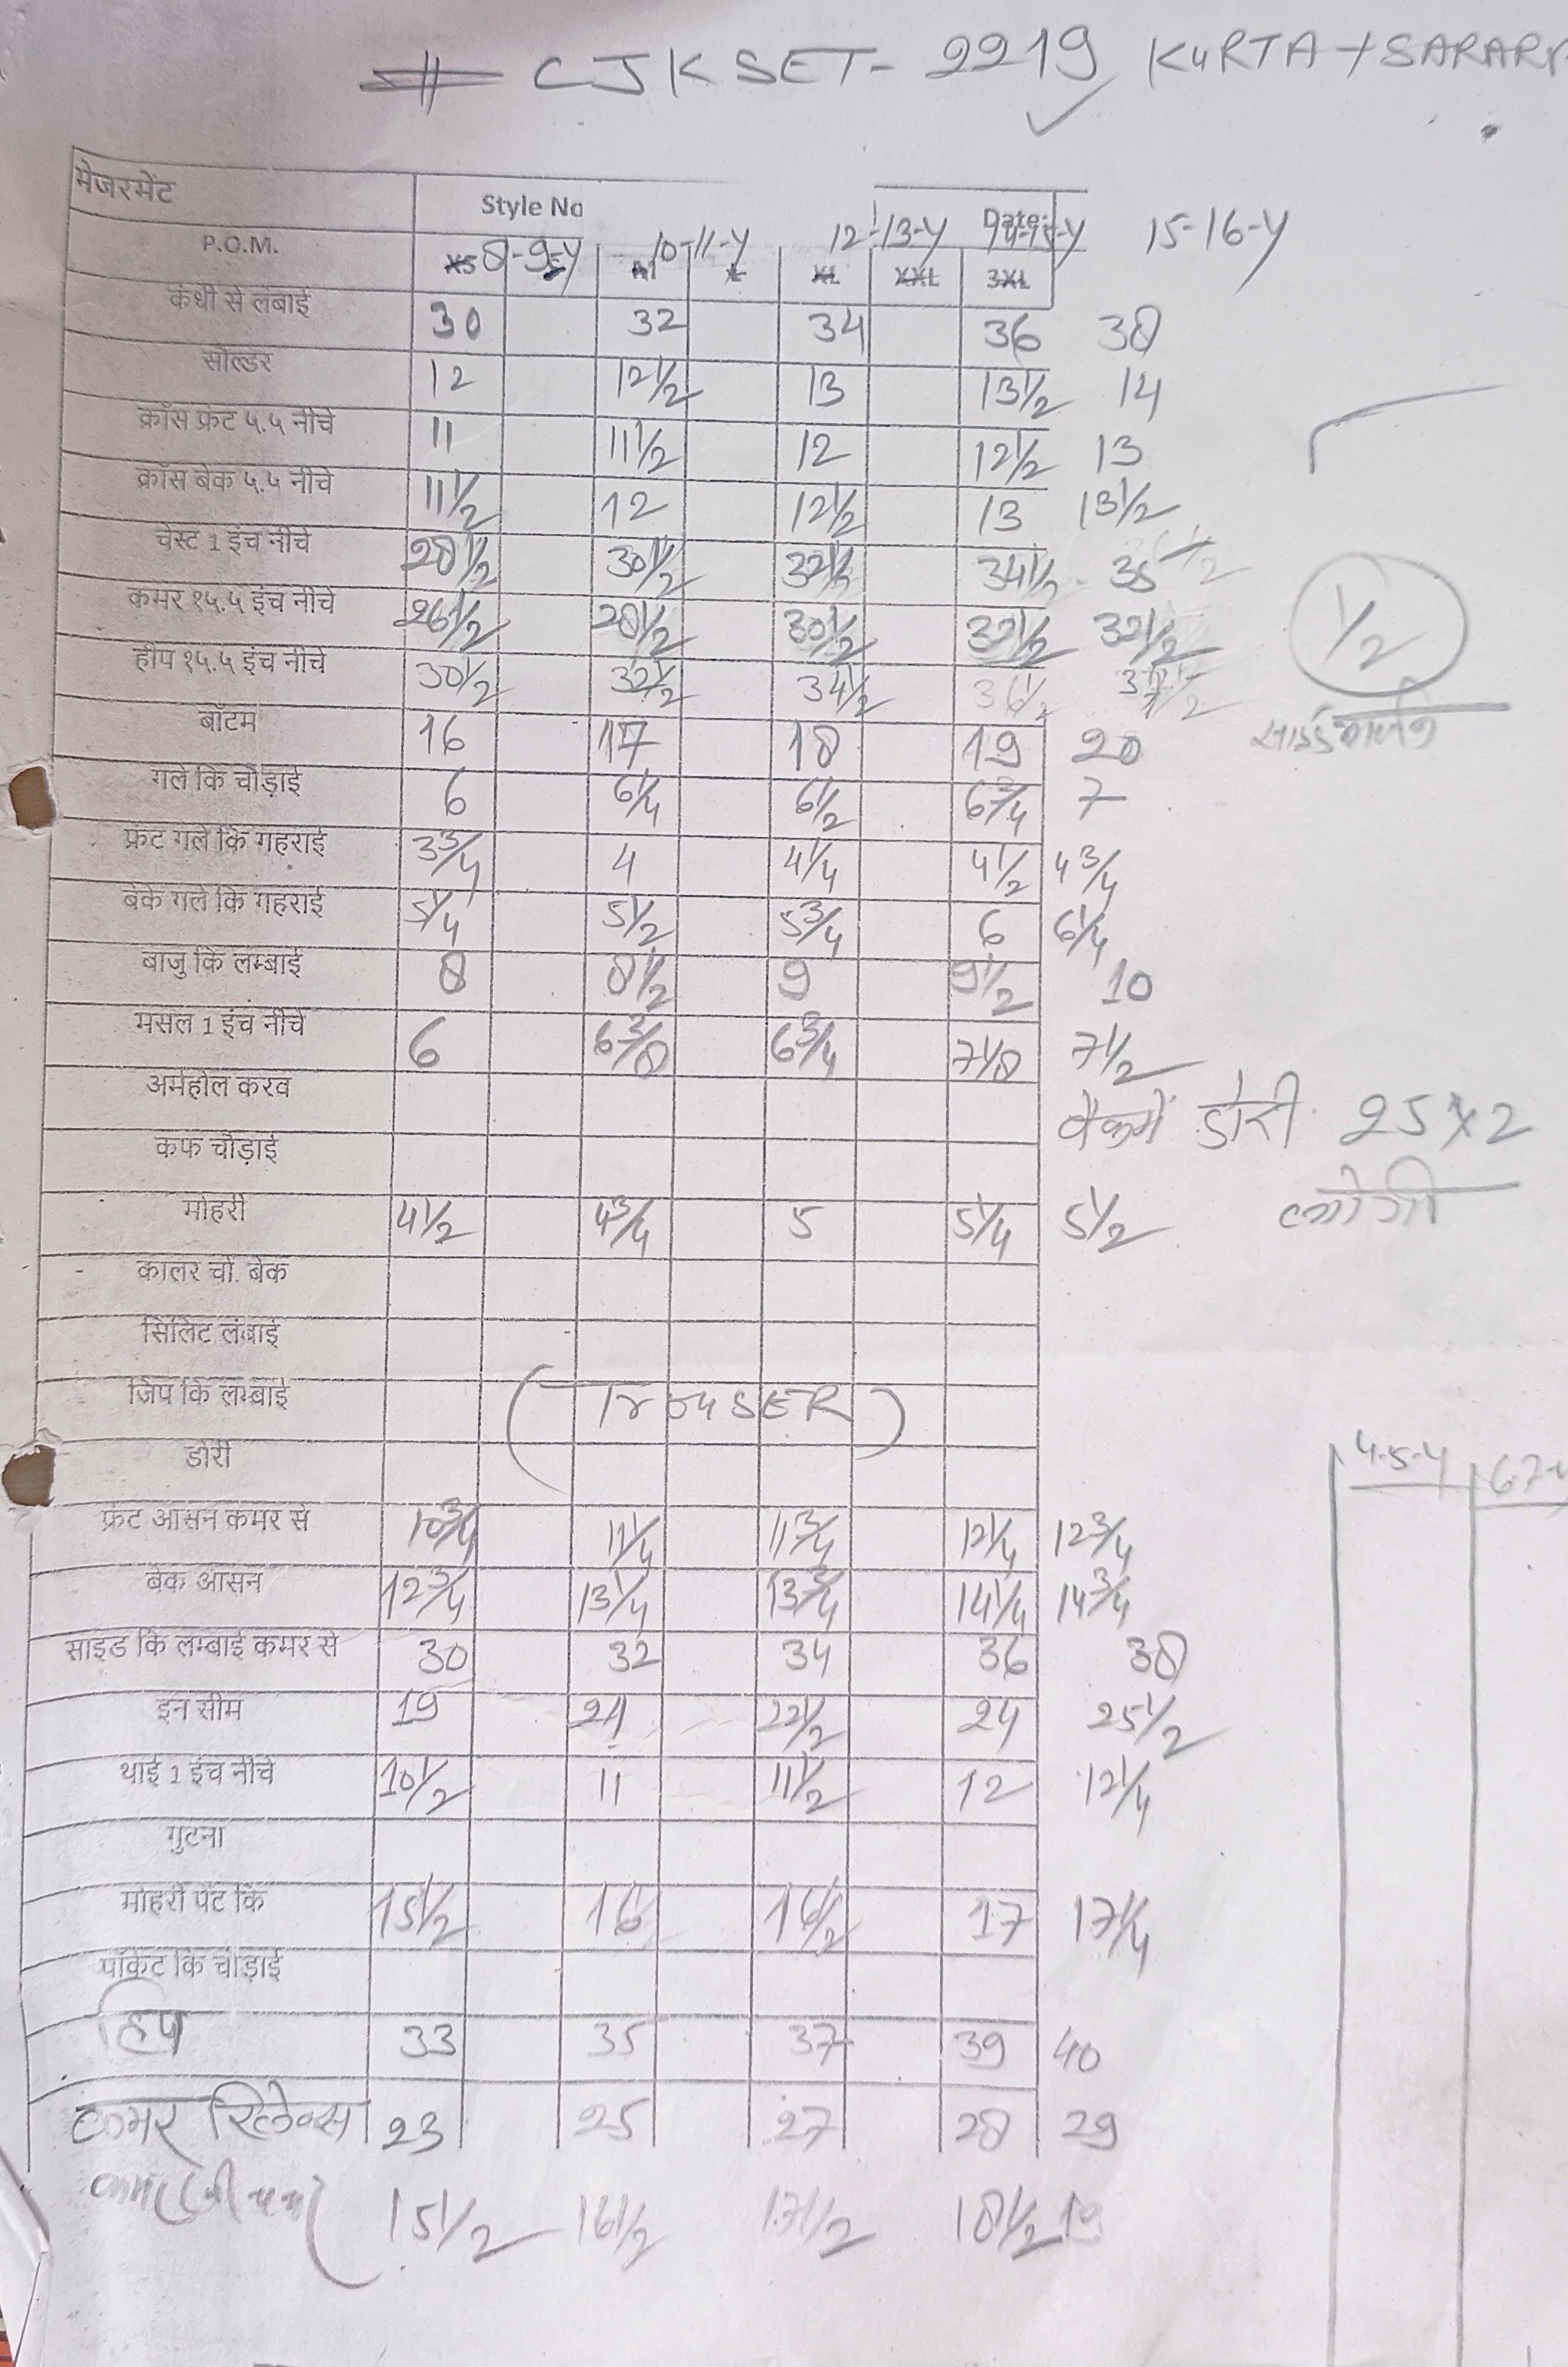 CJK SET- 2219 KURTA + SARARA
मेजरमेंट Style No Date:
P.O.M. XS 8-9-Y 10-11-Y XL 12-13-Y XXL 3XL 14-15-Y 15-16-Y
कंधी से लंबाई 30 32 34 36 38
सोल्डर 12 12 1/2 13 13 1/2 14
क्रॉस फ्रंट ५.५ नीचे 11 11 1/2 12 12 1/2 13
क्रॉस बेक ५.५ नीचे 11 1/2 12 12 1/2 13 13 1/2
चेस्ट 1 इंच नीचे 28 1/2 30 1/2 32 1/2 34 1/2
कमर १५.५ इंच नीचे 26 1/2 28 1/2 30 1/2 32 1/2 32 1/2
1/2
हीप १५.५ इंच नीचे 30 1/2 32 1/2 34 1/2 36 1/2
बॉटम 16 17 18 19 20
गले कि चौड़ाई 6 6 1/4 6 1/2 6 3/4 7
फ्रंट गले कि गहराई 3 3/4 4 4 1/4 4 1/2 4 3/4
बेक गले कि गहराई 5 1/4 5 1/2 5 3/4 6 6 1/4
बाजु कि लम्बाई 8 8 1/2 9 9 1/2 10
मसल 1 इंच नीचे 6 6 3/8 6 3/4 7 1/8 7 1/2
अर्महोल करव
बैकमें डोरी 25x2
कफ चौड़ाई
लगेगी
मोहरी 4 1/2 4 3/4 5 5 1/4 5 1/2
कालर चौ. बेक
सिलिट लंबाई
जिप कि लम्बाई
(TroUSER)
डोरी
4-5-Y 6-7-Y
फ्रंट आसन कमर से 10 3/4 11 1/4 11 3/4 12 1/4 12 3/4
बेक आसन 12 3/4 13 1/4 13 3/4 14 1/4 14 3/4
साइड कि लम्बाई कमर से 30 32 34 36 38
इन सीम 19 21 22 1/2 24 25 1/2
थाई 1 इंच नीचे 10 1/2 11 11 1/2 12 12 1/4
गुटना
मोहरी पेंट कि 15 1/2 16 16 1/2 17 17 1/4
पॉकेट कि चौड़ाई
हिप 33 35 37 39 40
कमर रिलेक्स 23 25 27 28 29
15 1/2 16 1/2 17 1/2 18 1/2 19